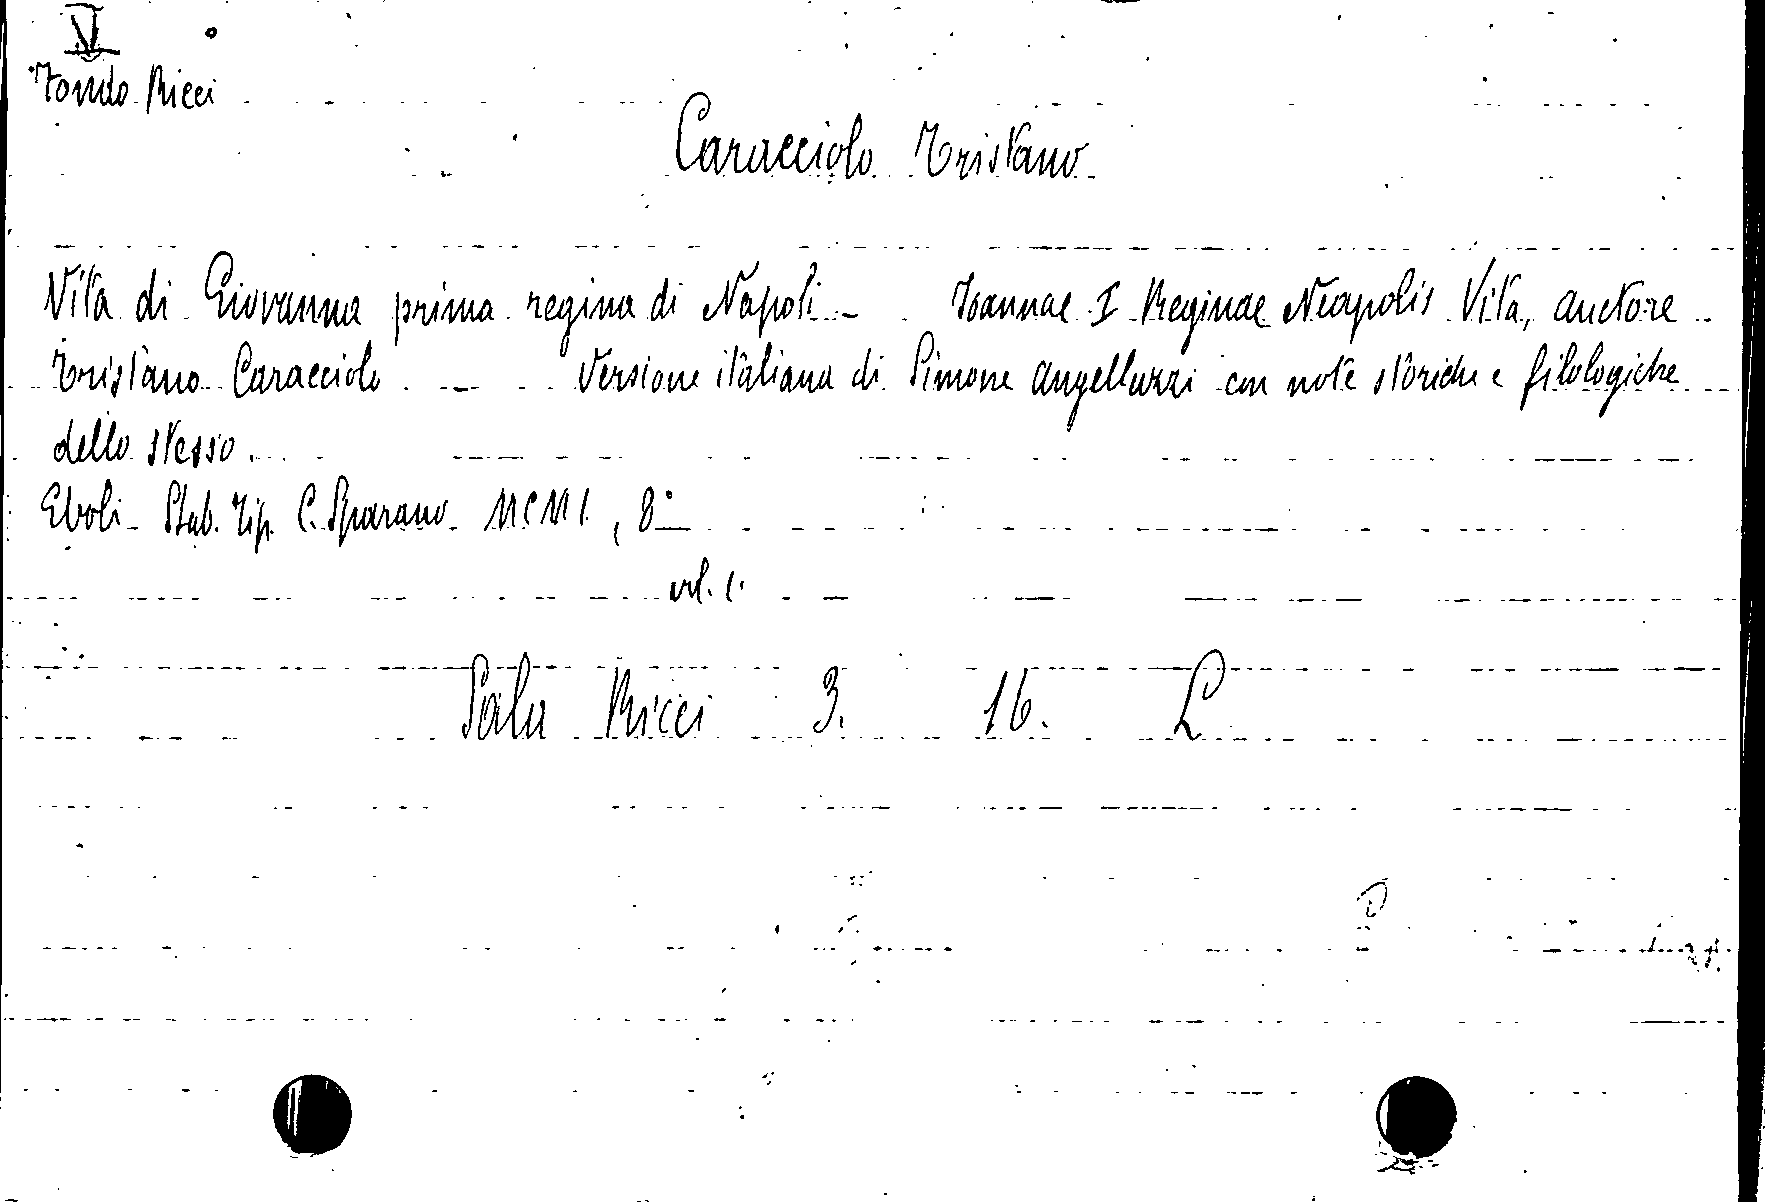 VI
Fondo Ricci
Caracciolo Tristano
Vita di Giovanna prima regina di Napoli - Ioannae I Reginae Neapolis Vita, auctore
Tristano Caracciolo - Versione italiana di Simone Angelluzzi con note storiche e filologiche
dello stesso.
Eboli - Stab. Tip. C. Sparano - MCMI, 8°
vol. 1.
Sala Ricci 3. 16. L